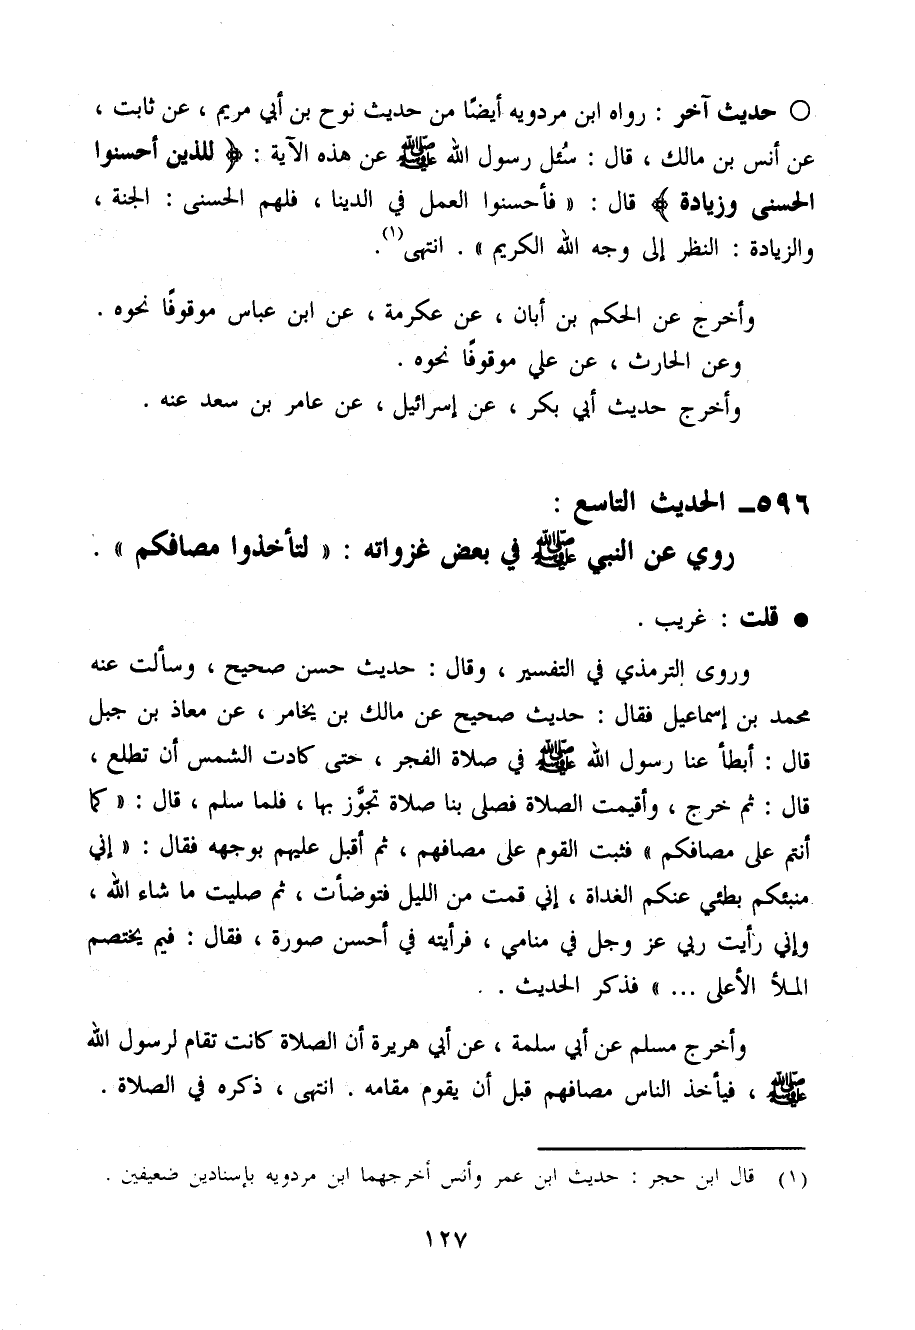 ○ حديث آخر : رواه ابن مردويه أيضًا من حديث نوح بن أبي مريم ، عن ثابت ،
عن أنس بن مالك ، قال : سُئل رسول الله ﷺ عن هذه الآية : ﴿ للذين أحسنوا
الحسنى وزيادة ﴾ قال : « فأحسنوا العمل في الدينا ، فلهم الحسنى : الجنة ،
والزيادة : النظر إلى وجه الله الكريم » . انتهى(١).
وأخرج عن الحكم بن أبان ، عن عكرمة ، عن ابن عباس موقوفًا نحوه .
وعن الحارث ، عن علي موقوفًا نحوه .
وأخرج حديث أبي بكر ، عن إسرائيل ، عن عامر بن سعد عنه .
٥٩٦ـ الحديث التاسع :
روي عن النبي ﷺ في بعض غزواته : « لتأخذوا مصافكم » .
● قلت : غريب .
وروى الترمذي في التفسير ، وقال : حديث حسن صحيح ، وسألت عنه
محمد بن إسماعيل فقال : حديث صحيح عن مالك بن يخامر ، عن معاذ بن جبل
قال : أبطأ عنا رسول الله ﷺ في صلاة الفجر ، حتى كادت الشمس أن تطلع ،
قال : ثم خرج ، وأقيمت الصلاة فصلى بنا صلاة تجوَّز بها ، فلما سلم ، قال : « كما
أنتم على مصافكم » فثبت القوم على مصافهم ، ثم أقبل عليهم بوجهه فقال : « إني
منبئكم بطئي عنكم الغداة ، إني قمت من الليل فتوضأت ، ثم صليت ما شاء الله ،
وإني رأيت ربي عز وجل في منامي ، فرأيته في أحسن صورة ، فقال : فيم يختصم
الملأ الأعلى ... » فذكر الحديث .
وأخرج مسلم عن أبي سلمة ، عن أبي هريرة أن الصلاة كانت تقام لرسول الله
ﷺ ، فيأخذ الناس مصافهم قبل أن يقوم مقامه . انتهى ، ذكره في الصلاة .
(١) قال ابن حجر : حديث ابن عمر وأنس أخرجهما ابن مردويه بإسنادين ضعيفين .
١٢٧